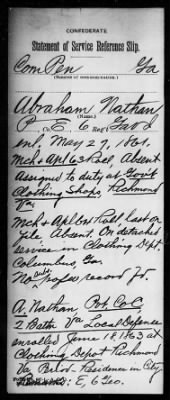 CONFEDERATE
Statement of Service Reference Slip.
Com Pen Ga
Abraham Nathan
(Name.)
P E, 6 Reg't Ga Inf
enl. May 27, 1861.
Mch & Apl 63 Roll Absent
Assigned to duty at Gov't
Clothing Shops, Richmond
Va.
Mch & Apl 64 Roll last on
file Absent. On detached
service in Clothing Dept.
Columbus, Ga.
No add'l record fd.
A. Nathan, Pvt, Co C
2 Battn Va Local Defence
enrolled June 18, 1863 at
Clothing Depot Richmond
Va Prlrd. Residence in City
E, 6 Geo.